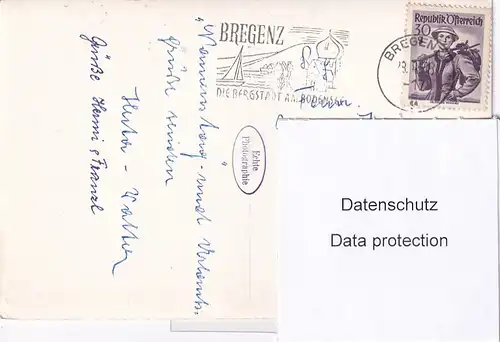 BREGENZ
DIE BERGSTADT AM BODENSEE
Republik Österreich
30
BREGEN
Echte
Photographie
und Urlaubs-
grüße senden
Herta - Walter
Grüße Hermi & Franzl
Datenschutz
Data protection